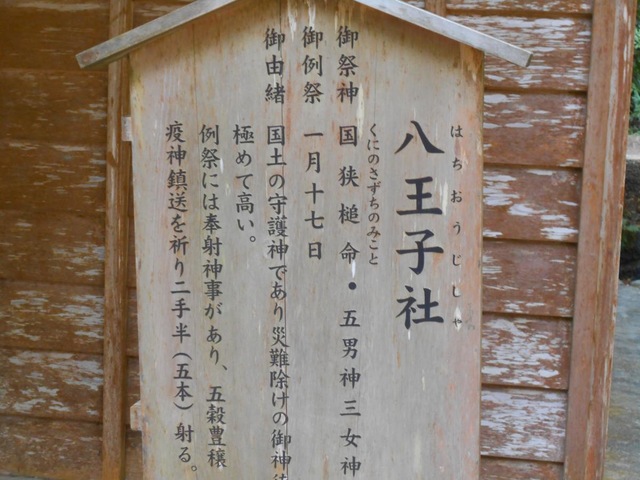 はちおうじしゃ
八王子社
くにのさずちのみこと
御祭神 国狭槌命・五男神三女神
御例祭 一月十七日
御由緒 国土の守護神であり災難除けの御神
極めて高い。
例祭には奉射神事があり、五穀豊穣
疫神鎮送を祈り二手半(五本)射る。